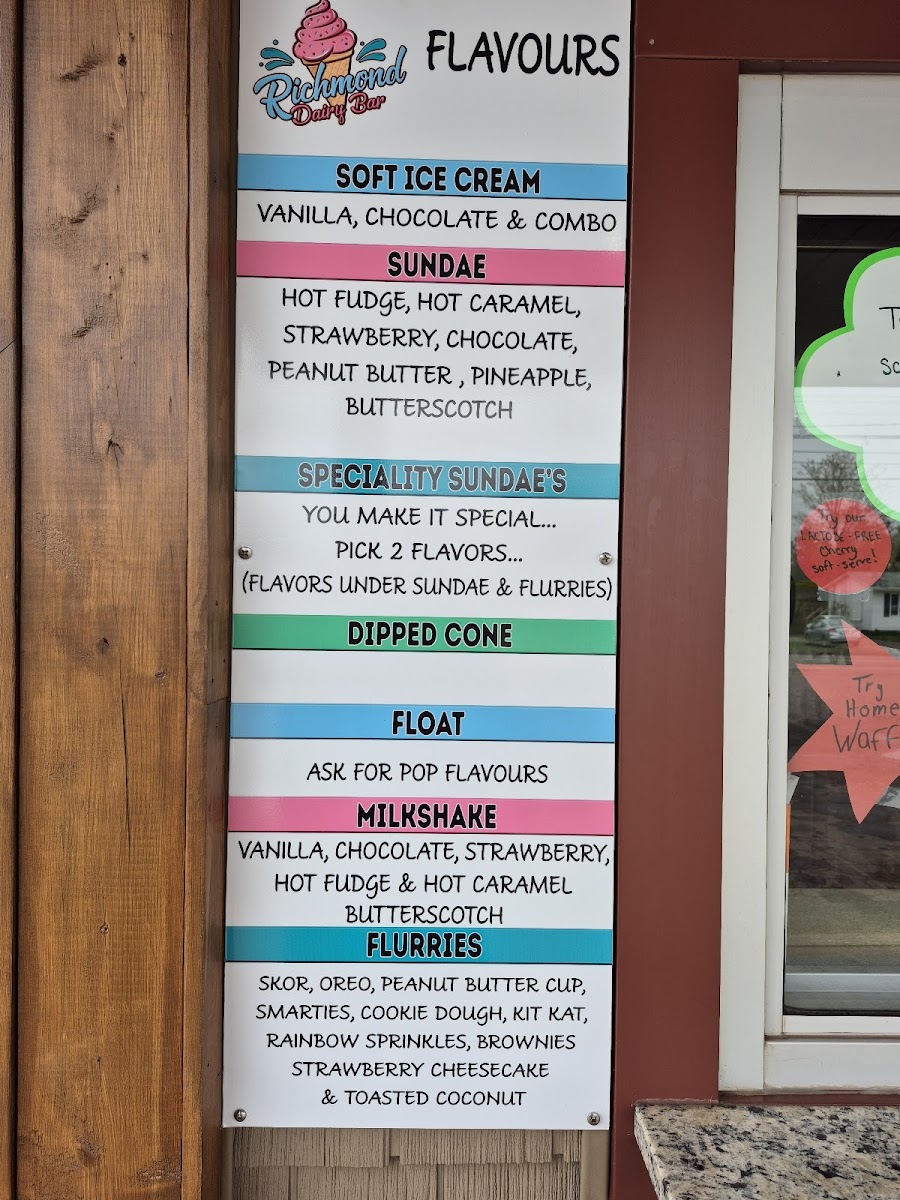 Richmond
Dairy Bar
FLAVOURS
SOFT ICE CREAM
VANILLA, CHOCOLATE & COMBO
SUNDAE
HOT FUDGE, HOT CARAMEL,
STRAWBERRY, CHOCOLATE,
PEANUT BUTTER , PINEAPPLE,
BUTTERSCOTCH
SPECIALITY SUNDAE'S
YOU MAKE IT SPECIAL...
PICK 2 FLAVORS...
(FLAVORS UNDER SUNDAE & FLURRIES)
DIPPED CONE
FLOAT
ASK FOR POP FLAVOURS
MILKSHAKE
VANILLA, CHOCOLATE, STRAWBERRY,
HOT FUDGE & HOT CARAMEL
BUTTERSCOTCH
FLURRIES
SKOR, OREO, PEANUT BUTTER CUP,
SMARTIES, COOKIE DOUGH, KIT KAT,
RAINBOW SPRINKLES, BROWNIES
STRAWBERRY CHEESECAKE
& TOASTED COCONUT
Try our
LACTOSE-FREE
Cherry
soft-serve!
Try
Home